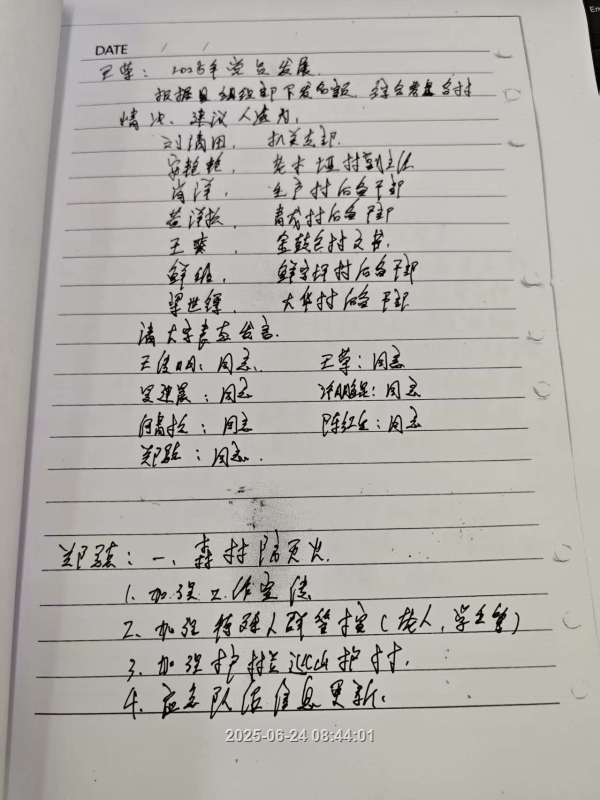 DATE / /
王荣: 2025年党员发展.
根据县组织部下发名额, 综合考虑各村
情况, 建议人选为,
刘清田, 机关支部.
安艳艳, 老木垭村副主任
肖洋, 生产村后备干部
苟洋松, 青龙村后备干部
王奕, 金鼓包村文书.
鲜班, 鲜家坪村后备干部
梁世缥, 大华村后备干部
请大家表态发言.
王俊明: 同意, 王荣: 同意
吴建晨: 同意 许鹏程: 同意
何青松: 同意 陈红生: 同意
郑骁: 同意.
郑骁: 一、森林防灭火.
1. 加强工作宣传
2、加强特殊人群管控 (老人, 学生等)
3、加强护林巡山护林.
4. 应急队伍信息更新.
2025-06-24 08:44:01